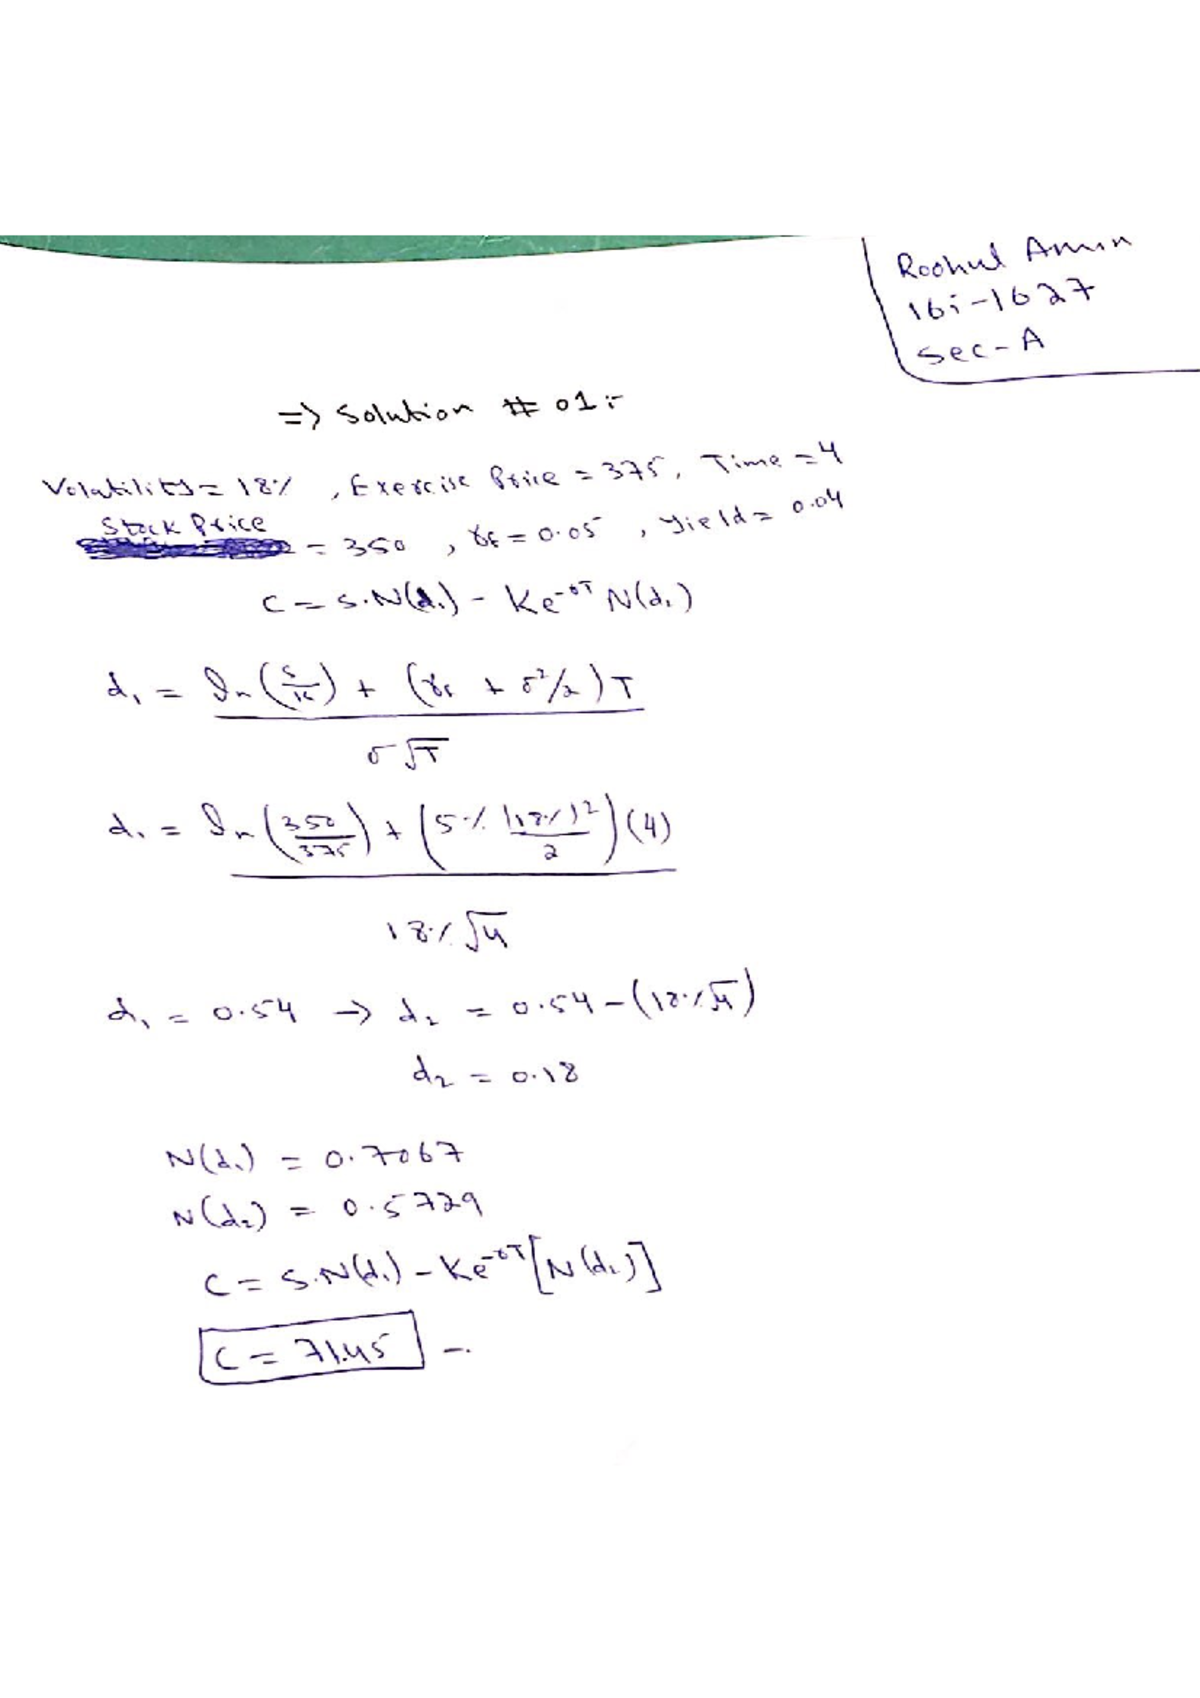 Roohul Amin
16i-1627
Sec-A
=> Solution # 01:-
Volatility = 18%, Exercise Price = 375, Time = 4
Stock Price = 350, rf = 0.05, Yield = 0.04
C = S.N(d₁) - Ke^-rT N(d₂)
d₁ = ln(S/K) + (rf + σ²/2)T
σ√T
d₁ = ln(350/375) + (5% (18%)²/2)(4)
18%√4
d₁ = 0.54 → d₂ = 0.54 - (18%√4)
d₂ = 0.18
N(d₁) = 0.7067
N(d₂) = 0.5729
C = S.N(d₁) - Ke^-rT[N(d₂)]
C = 71.45 -.